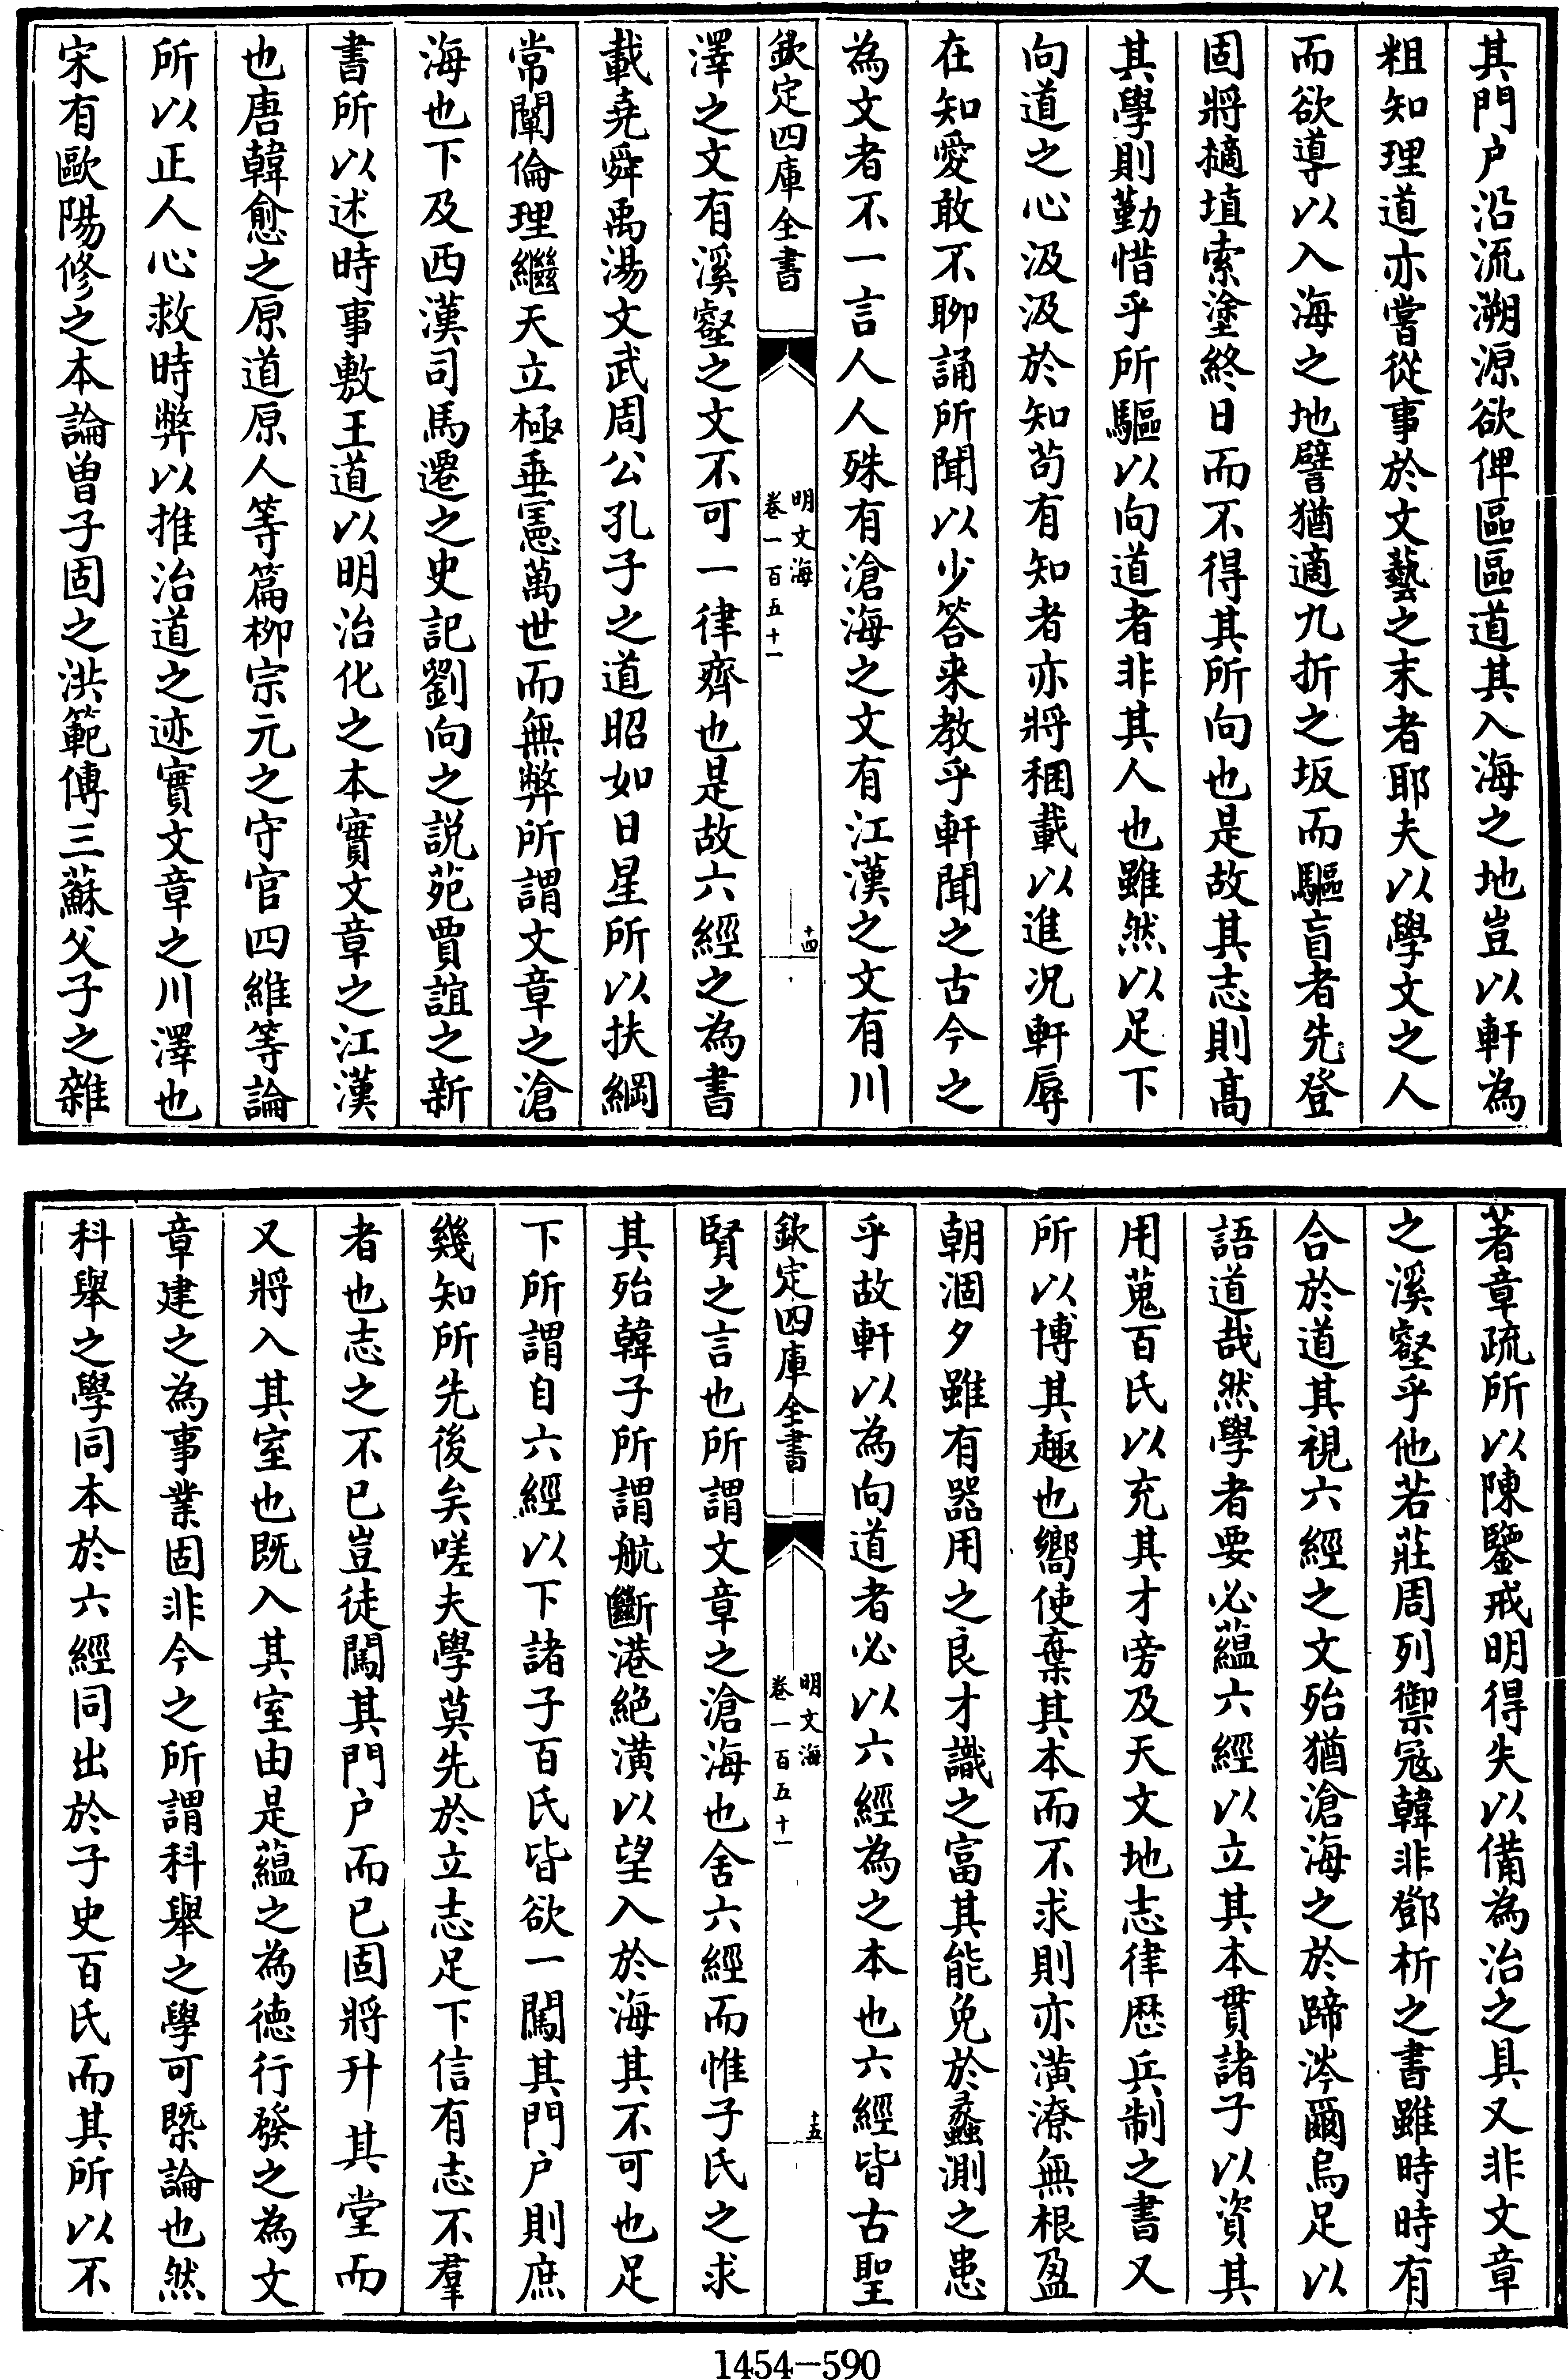 其門户沿流溯源欲俾區區道其入海之地豈以軒為
粗知理道亦嘗從事於文藝之末者耶夫以學文之人
而欲導以入海之地譬猶適九折之坂而驅盲者先登
固將擿埴索塗終日而不得其所向也是故其志則髙
其學則勤惜乎所驅以向道者非其人也雖然以足下
向道之心汲汲於知苟有知者亦將稇載以進况軒辱
在知愛敢不聊誦所聞以少答来教乎軒聞之古今之
為文者不一言人人殊有滄海之文有江漢之文有川
欽定四庫全書
明文海
卷一百五十一
十四
澤之文有溪壑之文不可一律齊也是故六經之為書
載堯舜禹湯文武周公孔子之道昭如日星所以扶綱
常闡倫理繼天立極垂憲萬世而無弊所謂文章之滄
海也下及西漢司馬遷之史記劉向之説苑賈誼之新
書所以述時事敷王道以明治化之本實文章之江漢
也唐韓愈之原道原人等篇柳宗元之守官四維等論
所以正人心救時弊以推治道之迹實文章之川澤也
宋有歐陽修之本論曽子固之洪範傳三蘇父子之雜
著章疏所以陳鑒戒明得失以備為治之具又非文章
之溪壑乎他若莊周列禦冦韓非鄧析之書雖時時有
合於道其視六經之文殆猶滄海之於蹄涔爾烏足以
語道哉然學者要必蘊六經以立其本貫諸子以資其
用蒐百氏以充其才旁及天文地志律厯兵制之書又
所以博其趣也嚮使棄其本而不求則亦潢潦無根盈
朝涸夕雖有器用之良才識之富其能免於蠡測之患
乎故軒以為向道者必以六經為之本也六經皆古聖
欽定四庫全書
明文海
卷一百五十一
十五
賢之言也所謂文章之滄海也舍六經而惟子氏之求
其殆韓子所謂航斷港絶潢以望入於海其不可也足
下所謂自六經以下諸子百氏皆欲一闖其門户則庶
幾知所先後矣嗟夫學莫先於立志足下信有志不羣
者也志之不已豈徒闖其門户而已固將升其堂而
又將入其室也既入其室由是蘊之為徳行發之為文
章建之為事業固非今之所謂科舉之學可槩論也然
科舉之學同本於六經同出於子史百氏而其所以不
1454—590